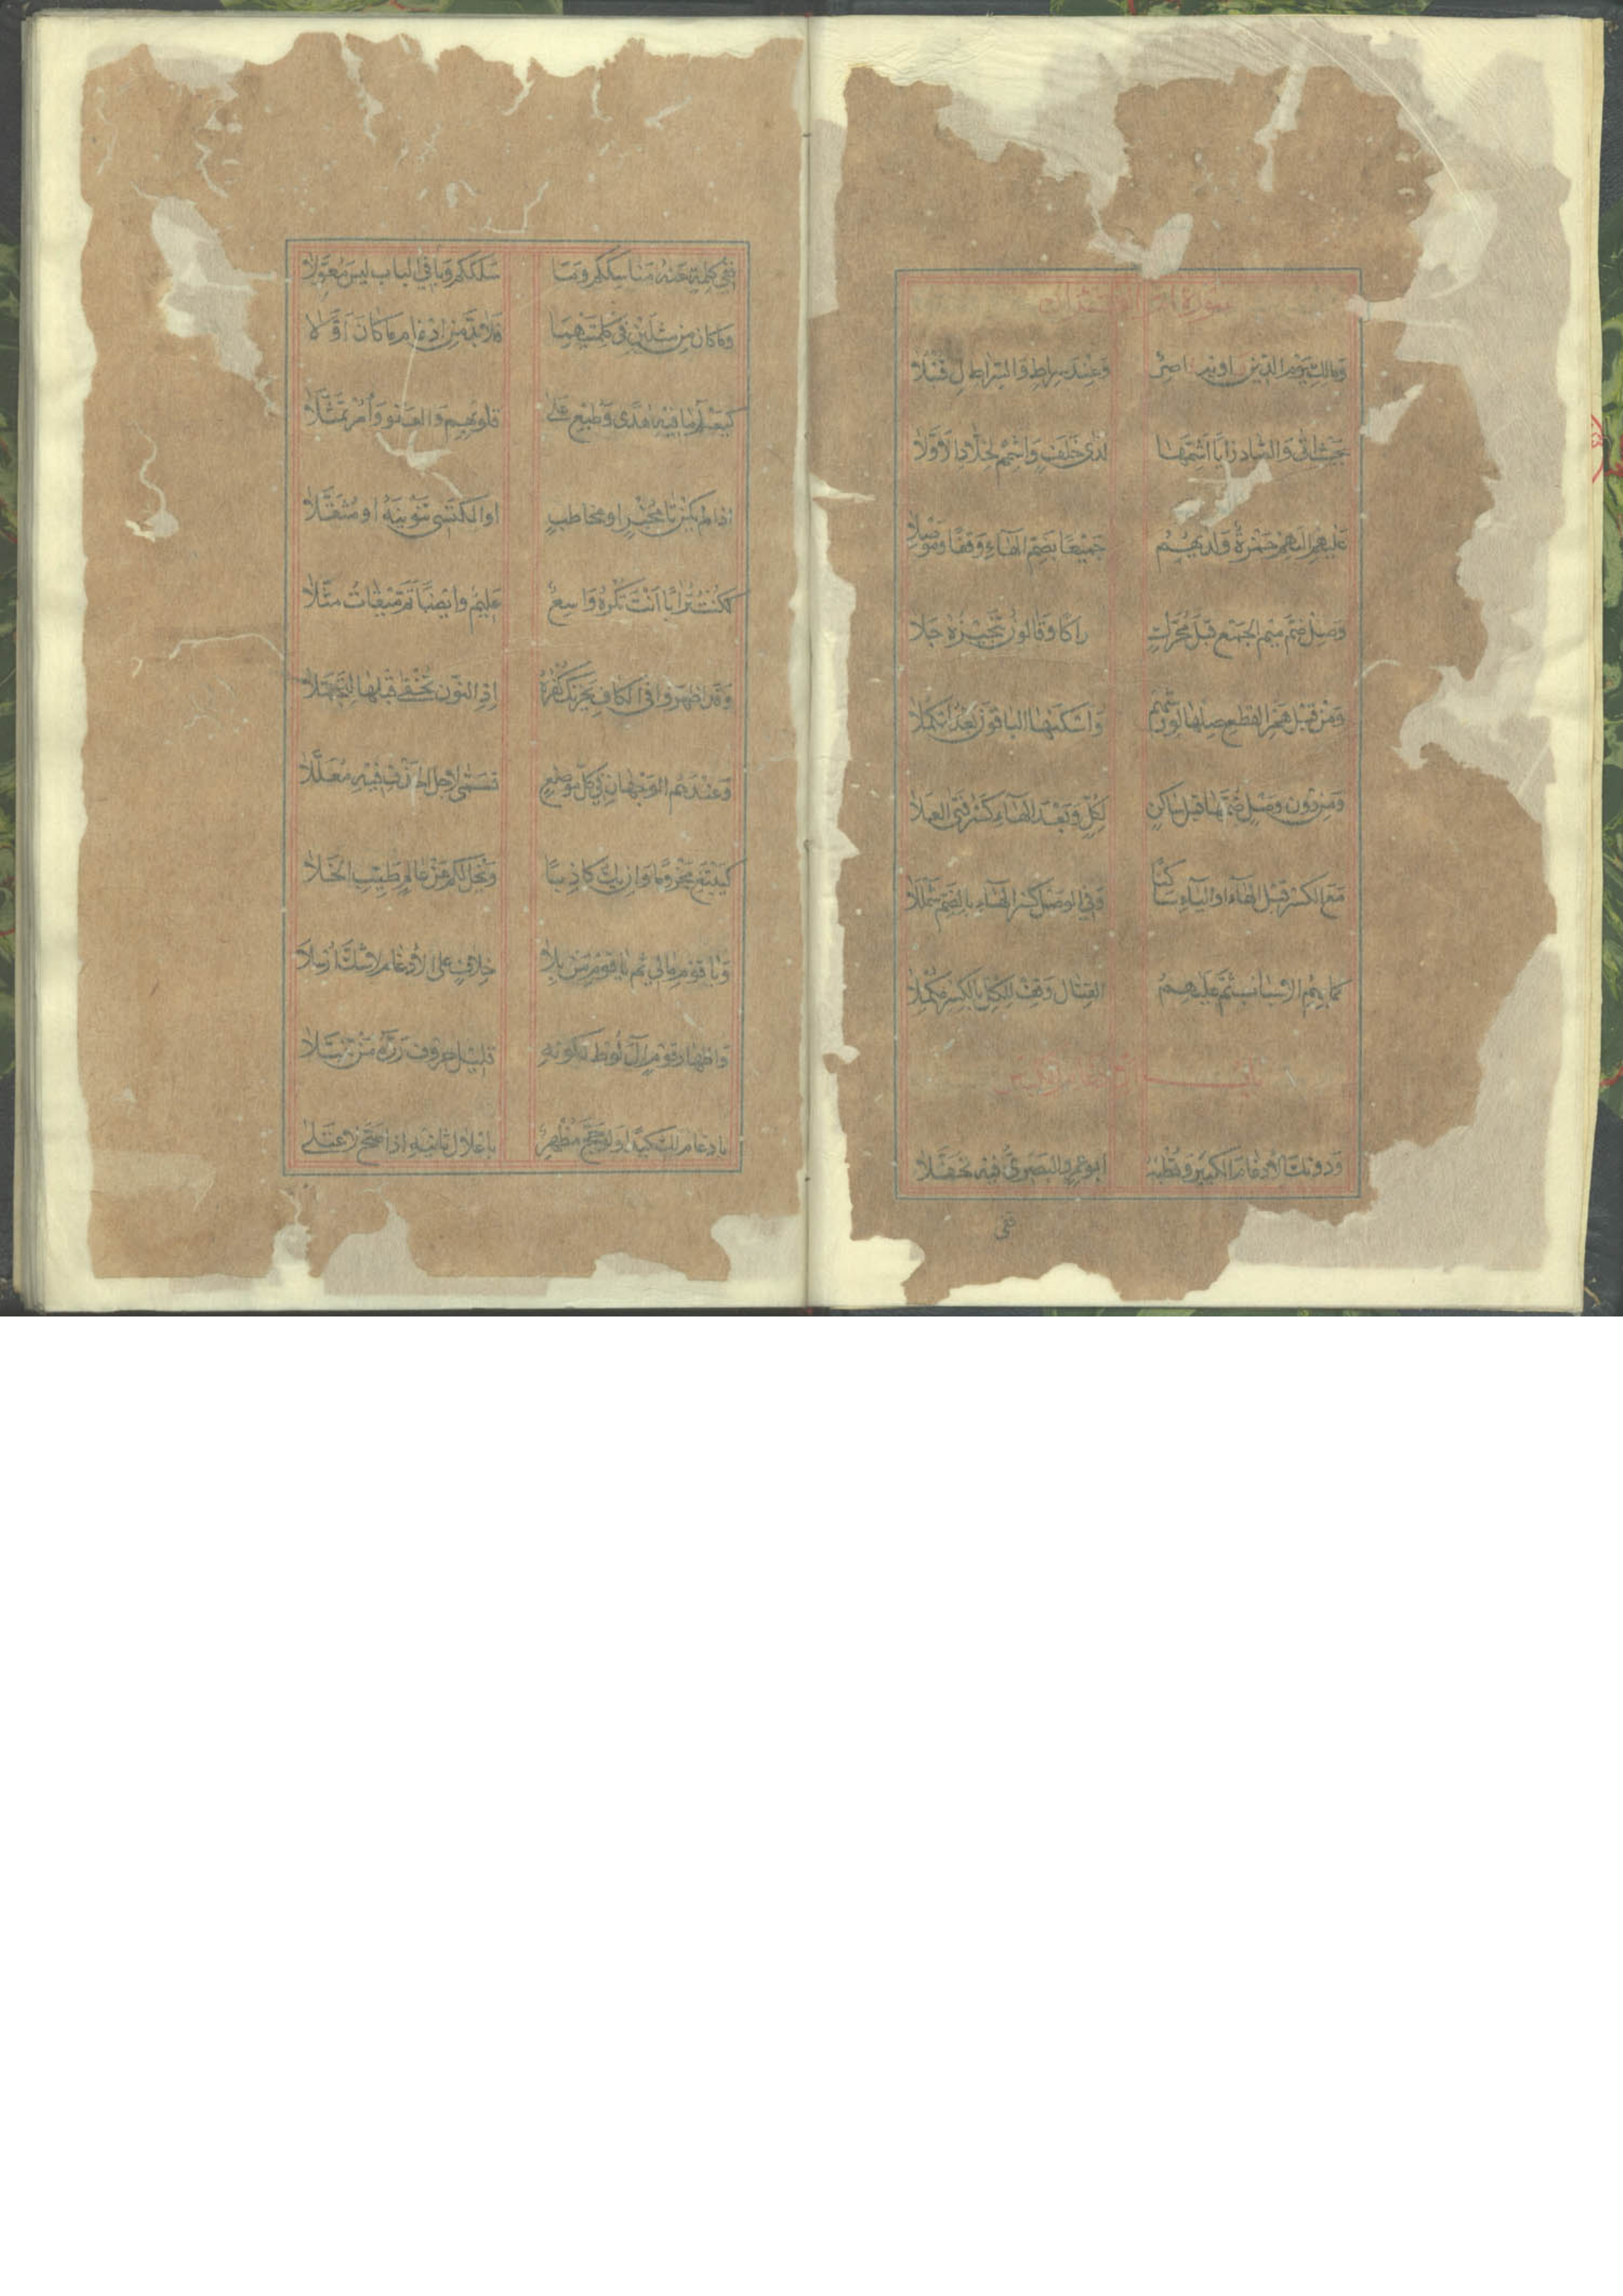 سورة أم القرآن
وَمالِكِ يَوْمِ الدِّينِ راويه ناصِرٌ وَعِنْدَ سِراطِ وَالسِّراطِ لِ قُنْبُلَا
بِحَيْثُ اَتى وَالصَّادَ زايًا اَشِمَّهَا لَدى خَلَفٍ وَاشْمِمْ لِخَلَّادِ الْاَوَّلَا
عَلَيْهِمْ اِلَيْهِمْ حَمْزَةٌ وَلَدَيْهِمُ جَمِيْعًا بِضَمِّ الْهاءِ وَقْفًا وَمَوْصِلَا
وَصِلْ ضَمَّ مِيْمِ الْجَمْعِ قَبْلَ مُحَرَّكٍ دِراكًا وَقالُونٌ بِتَخْيِيْرِهِ جَلَا
وَمِنْ قَبْلِ هَمْزِ الْقَطْعِ صِلْها لِوَرْشِهِمْ وَاَسْكَنَهَا الْباقُوْنَ بَعْدُ لِتَكْمُلَا
وَمِنْ دُوْنِ وَصْلٍ ضَمُّها قَبْلَ ساكِنٍ لِكُلٍّ وَبَعْدَ الْهاءِ كَسْرُ فَتَى الْعَلَا
مَعَ الْكَسْرِ قَبْلَ الْهاءِ اَوِ الْياءِ ساكِنًا وَفِي الْوَصْلِ كَسْرُ الْهاءِ بِالضَّمِّ شَمْلَلَا
كَما بِهِمِ الْاَسْبابُ ثُمَّ عَلَيْهِمُ الْقِتالُ وَقِفْ لِلْكُلِّ بِالْكَسْرِ مُكْمِلَا
باب الإدغام الكبير
وَدُوْنَكَ الْاِدْغامَ الْكَبِيْرَ وَقُطْبُهُ اَبُو عَمْرٍو الْبَصْرِيُّ فِيْهِ تَحَفَّلَا
ففي
فَفِي كِلْمَةٍ عَنْهُ مَناسِكَكُمْ وَمَا سَلَكَكُمْ وَباقِي الْبابِ لَيْسَ مُعَوَّلَا
وَما كانَ مِنْ مِثْلَيْنِ فِي كِلْمَتَيْهِمَا فَلَا بُدَّ مِنْ اِدْغامِ ما كانَ اَوَّلَا
كَيَعْلَمُ ما فِيْهِ هُدًى وَطُبِعْ عَلَى قُلُوْبِهِمِ وَالْعَفْوَ وَأْمُرْ تَمَثَّلَا
اِذا لَمْ يَكُنْ تا مُخْبِرٍ اَوْ مُخاطَبٍ اَوِ الْمُكْتَسِي تَنْوِيْنُهُ اَوْ مُثَقَّلَا
كَكُنْتُ تُرابًا اَنْتَ تُكْرِهُ واسِعٌ عَلِيْمٌ وَاَيْضًا تَمَّ مِيْقاتُ مُثِّلَا
وَقَدْ اَظْهَرُوا فِي الْكافِ يَحْزُنْكَ كُفْرُهُ اِذِ النُّوْنُ تُخْفى قَبْلَها لِتُجَمَّلَا
وَعِنْدَهُمُ الْوَجْهانِ فِي كُلِّ مَوْضِعٍ تَسَمّى لِاَجْلِ الْحَذْفِ فِيْهِ مُعَلَّلَا
كَيَبْتَغِ مَجْزُوْمًا وَاِنْ يَكُ كاذِبًا وَيَخْلُ لَكُمْ عَنْ عالِمٍ طَيِّبِ الْخَلَا
وَيا قَوْمِ مالِي ثُمَّ يا قَوْمِ مَنْ بِلَا خِلافٍ عَلَى الْاِدْغامِ لَا شَكَّ اُرْسِلَا
وَاِظْهارُ قَوْمٍ آلَ لُوْطٍ لِكَوْنِهِ قَلِيْلَ حُرُوْفٍ رَدَّهُ مَنْ تَنَبَّلَا
بِاِدْغامِ لَكَ كَيْدًا وَلَوْ حَجَّ مُظْهِرٌ بِاِعْلالِ ثانِيْهِ اِذا صَحَّ لَاعْتَلى